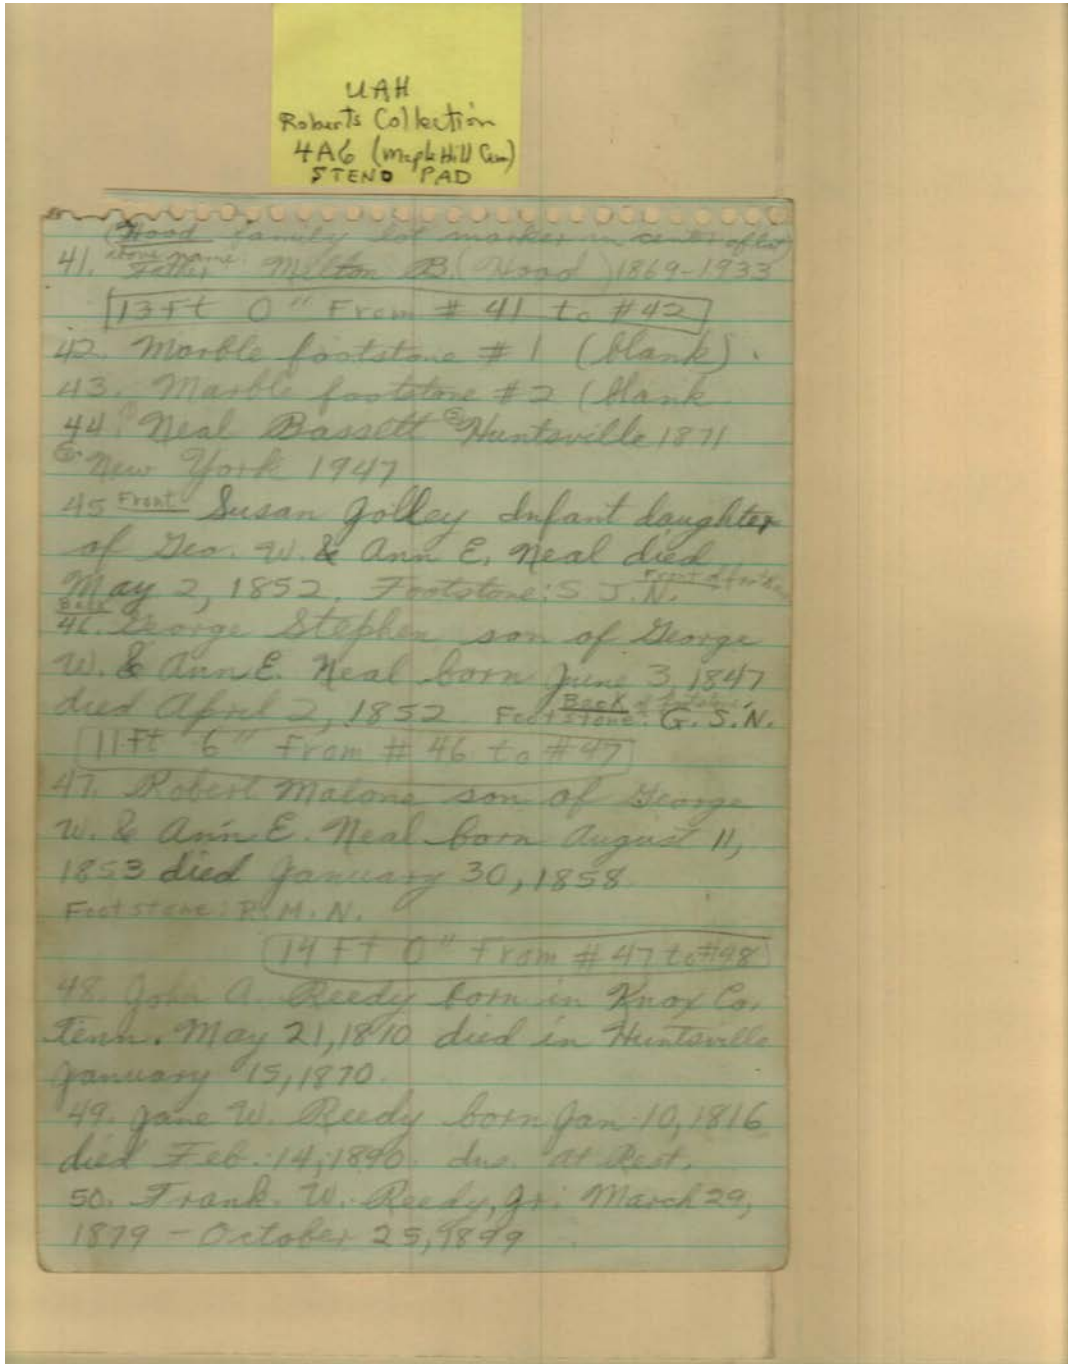 UAH
Roberts Collection
4A6 (Maple Hill Cem)
STENO PAD
(Hood family lot marker in center of lot)
above name:
41. Father Milton B. (Hood) 1869-1933
13 Ft 0" From # 41 to #42
42. Marble footstone # 1 (blank).
43. Marble footstone # 2 (blank
44. Neal Bassett Huntsville 1871
New York 1947
45 Front Susan Jolley Infant daughter
of Geo. W. & Ann E. Neal died
May 2, 1852. Footstone: S. J. N. Front of
Back
46. George Stephen son of George
W. & Ann E. Neal born June 3, 1847
died April 2, 1852 Footstone: Back of footstone G. S. N.
11 Ft 6" From # 46 to #47
47. Robert Malone son of George
W. & Ann E. Neal born August 11,
1853 died January 30, 1858
Footstone: R. M. N.
14 Ft 0" From # 47 to #48
48. John A. Reedy born in Knox Co.
Tenn. May 21, 1810 died in Huntsville
January 15, 1870.
49. Jane W. Reedy born Jan 10, 1816
died Feb. 14, 1890. Ins. At Rest.
50. Frank. W. Reedy, Jr. March 29,
1879 - October 25, 1899